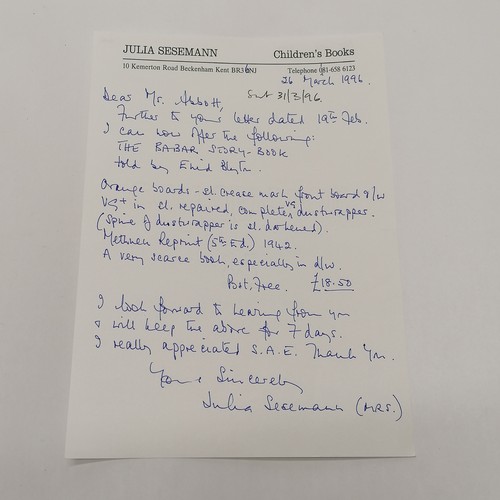 JULIA SESEMANN Children's Books
10 Kemerton Road Beckenham Kent BR3 6NJ Telephone 081-658 6123
26 March 1996.
Dear Mr. Abbott, Sat 31/3/96.
Further to your letter dated 19th Feb.
I can now offer the following:
THE BABAR STORY-BOOK
told by Enid Blyton.
Orange boards - sl. crease mark front board o/w
VG+ in sl. repaired, complete VG dustwrapper.
(Spine of dustwrapper is sl. darkened).
Methuen Reprint (5th Ed.) 1942.
A very scarce book, especially in d/w.
Post Free. £18.50
I look forward to hearing from you
& will keep the above for 7 days.
I really appreciated S.A.E. Thank You.
Yours Sincerely
Julia Sesemann (MRS.)